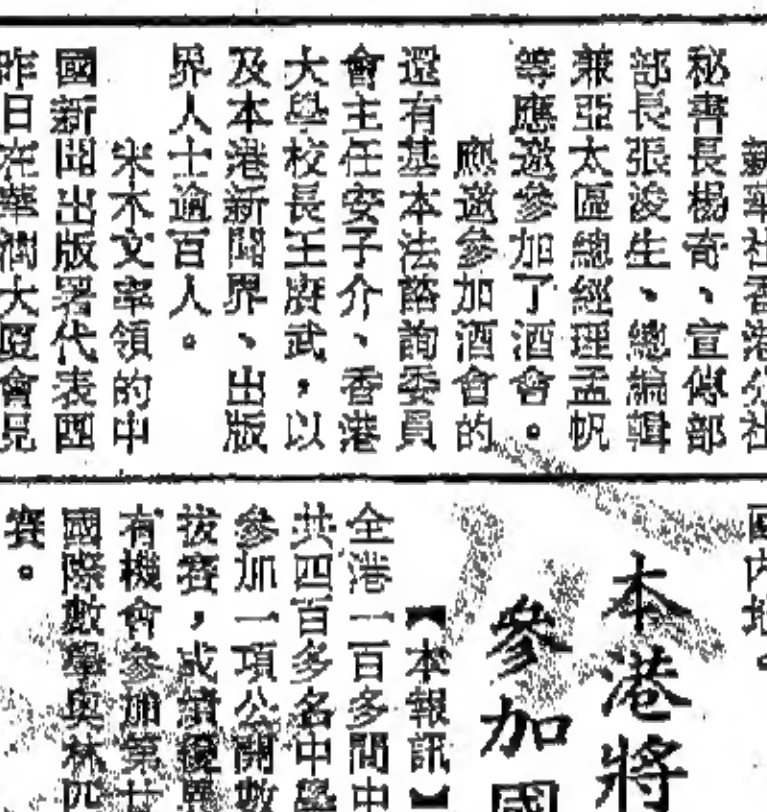 新華社香港分社
秘書長楊奇、宣傳部
部長張浚生、總編輯
兼亞太區總經理孟帆
等應邀參加了酒會。
應邀參加酒會的
還有基本法諮詢委員
會主任安子介、香港
大學校長王賡武,以
及本港新聞界、出版
界人士逾百人。
宋木文率領的中
國新聞出版署代表團
昨日在華潤大廈會見
國內地。
本港將
參加國
【本報訊】
全港一百多間中
共四百多名中學
參加一項公開數
拔賽,成績優異
有機會參加第廿
國際數學奧林匹
賽。